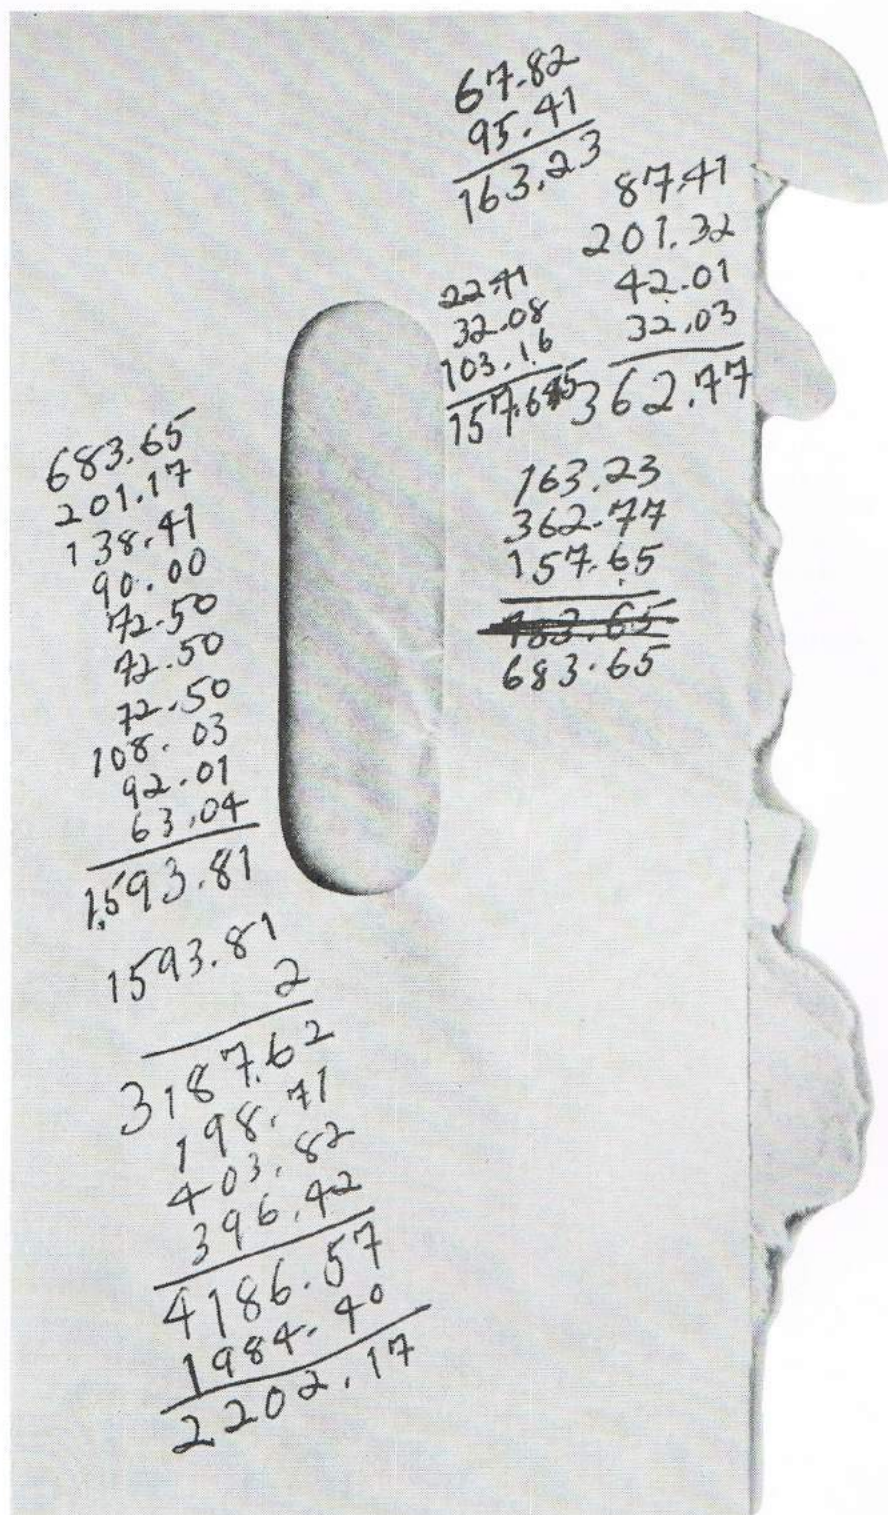 67.82
95.41
163.23
87.41
201.32
42.01
32.03
362.77
22.41
32.08
103.16
157.65
163.23
362.77
157.65
783.65
683.65
683.65
201.17
138.41
90.00
72.50
72.50
72.50
108.03
92.01
63.04
1593.81
1593.81
2
3187.62
198.71
403.82
396.42
4186.57
1984.40
2202.17